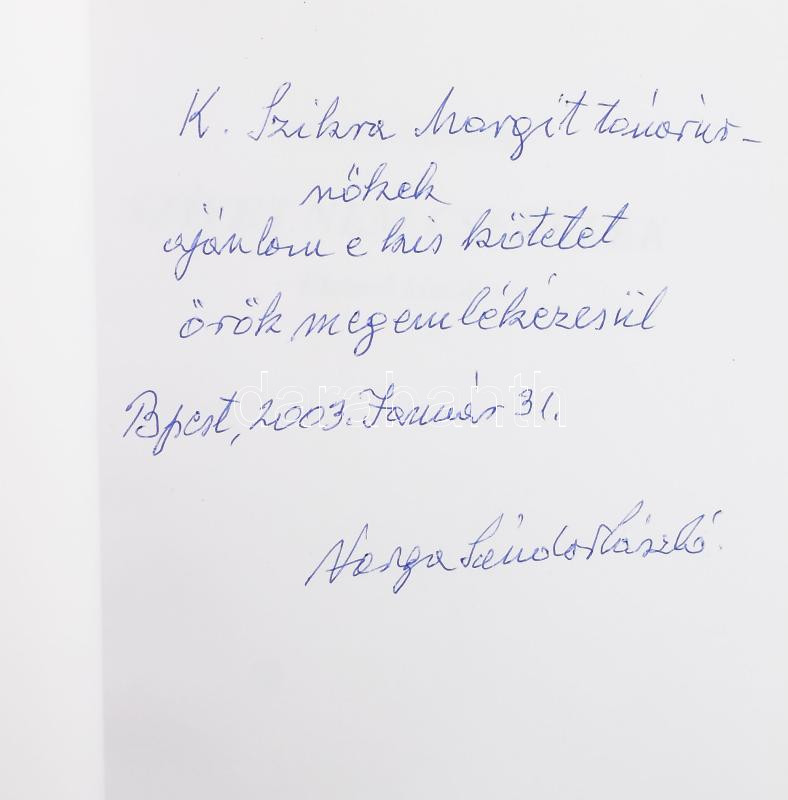 K. Szikra Margit tanárúr-
nőkek
ajánlom e kis kötetet
örök megemlékézesül
Bpest, 2003. Január 31.
Varga Sándor László
darabanth